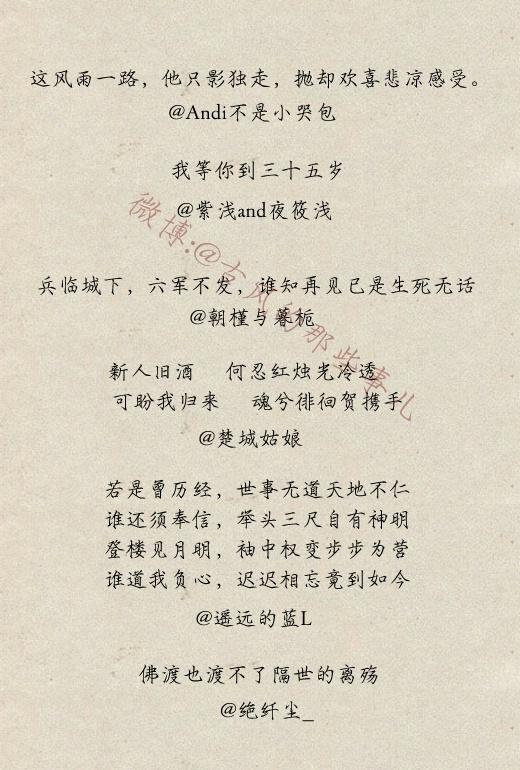 这风雨一路，他只影独走，抛却欢喜悲凉感受。
@Andi不是小哭包
我等你到三十五岁
@紫浅and夜筱浅
微博:@古风的那些事儿
兵临城下，六军不发，谁知再见已是生死无话
@朝槿与暮栀
新人旧酒 何忍红烛光冷透
可盼我归来 魂兮徘徊贺携手
@楚城姑娘
若是曾历经，世事无道天地不仁
谁还须奉信，举头三尺自有神明
登楼见月明，袖中权变步步为营
谁道我负心，迟迟相忘竟到如今
@遥远的蓝L
佛渡也渡不了隔世的离殇
@绝纤尘_